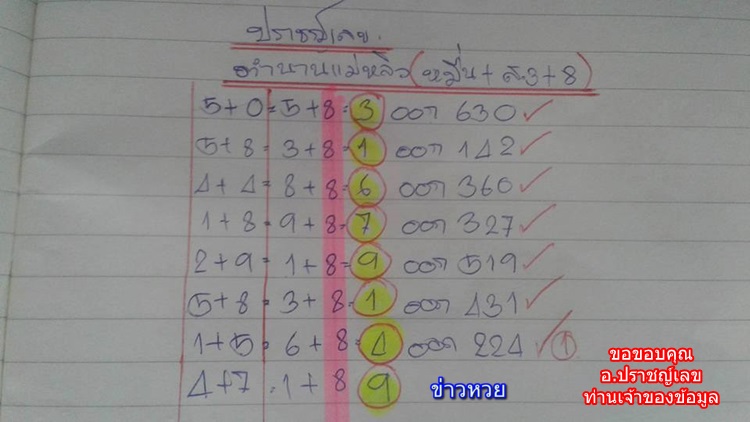 ปราชญ์เลข.
ตำนานแม่หลิว (หมื่น + ส.3 + 8)
5 + 0 = 5 + 8 = 3 ออก 630 ✓
5 + 8 = 3 + 8 = 1 ออก 142 ✓
4 + 4 = 8 + 8 = 6 ออก 360 ✓
1 + 8 = 9 + 8 = 7 ออก 327 ✓
2 + 9 = 1 + 8 = 9 ออก 519 ✓
5 + 8 = 3 + 8 = 1 ออก 431 ✓
1 + 5 = 6 + 8 = 4 ออก 224 ✓ 1
4 + 7 = 1 + 8 9
ข่าวหวย
ขอขอบคุณ
อ.ปราชญ์เลข
ท่านเจ้าของข้อมูล